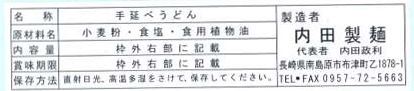 名称 手延べうどん
原材料名 小麦粉・食塩・食用植物油
内容量 枠外右部に記載
賞味期限 枠外右部に記載
保存方法 直射日光、高温多湿をさけて、保存してください。
製造者
内田製麺
代表者 内田政利
長崎県南島原市布津町乙1878-1
TEL・FAX 0957-72-5663